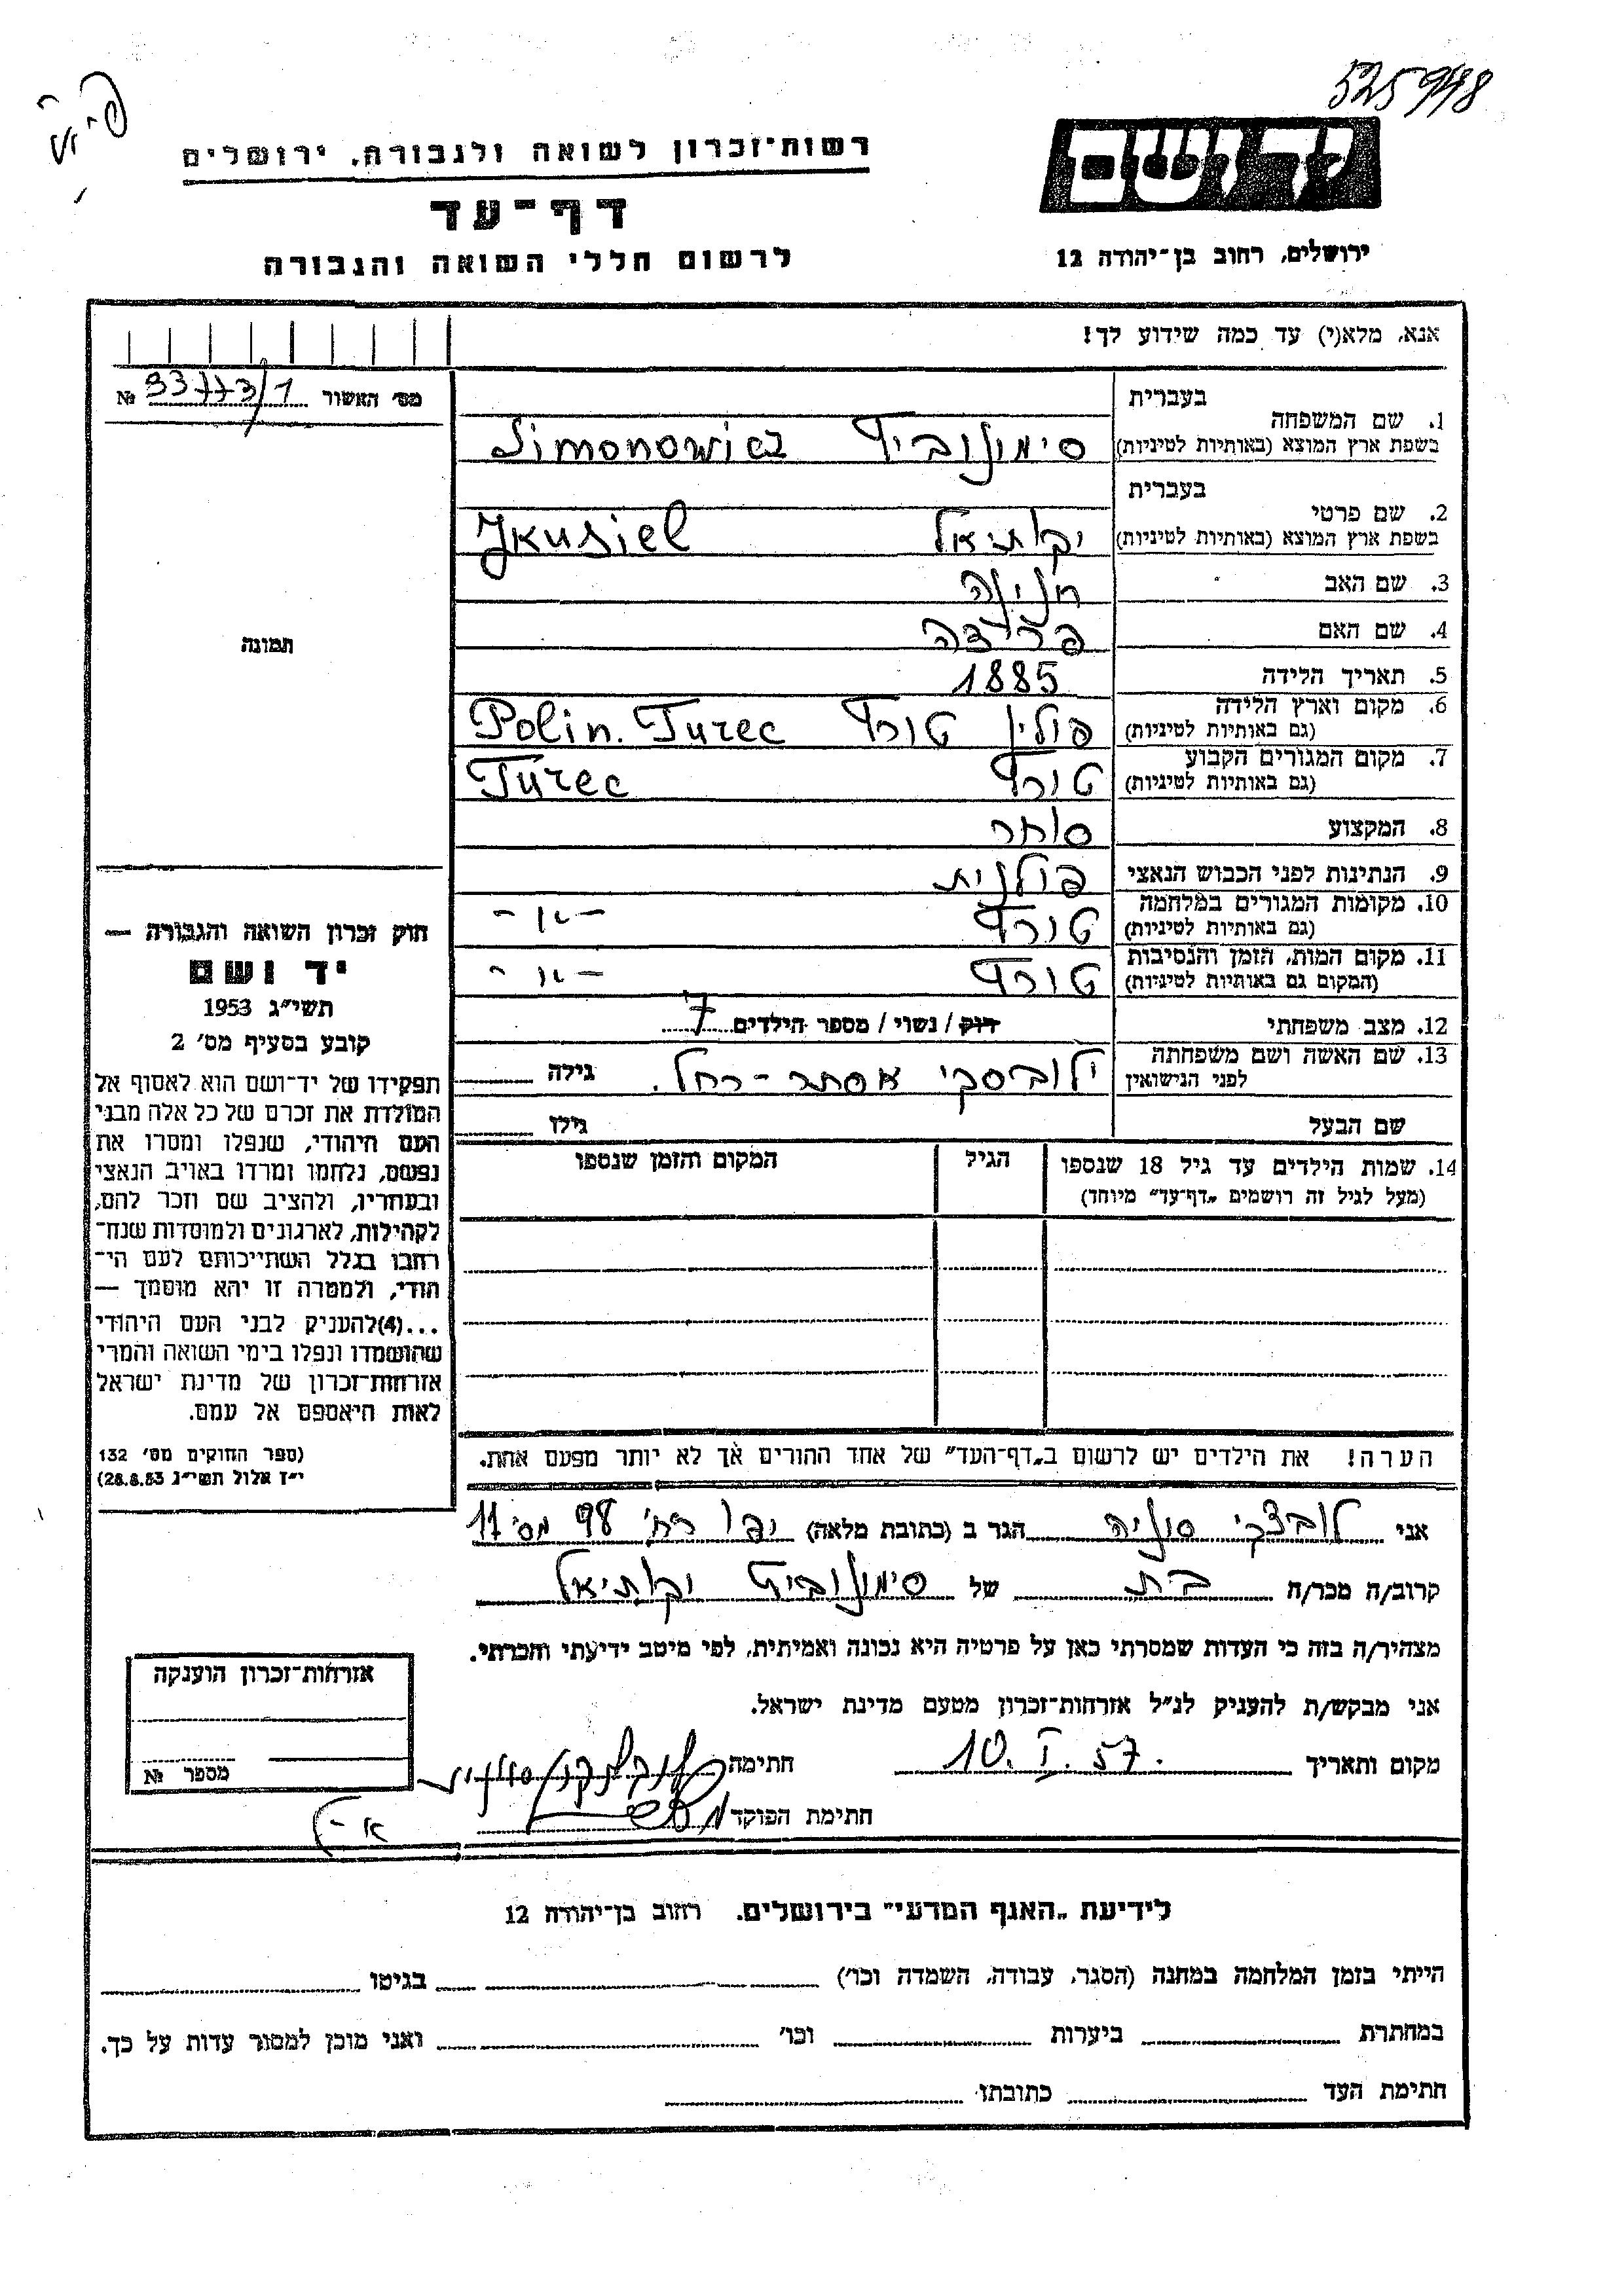 525948
פ.י.ש
רשות־זכרון לשואה ולגבורה, ירושלים
יד ושם
דף־עד
לרשום חללי השואה והגבורה
ירושלים, רחוב בן־יהודה 12
אנא, מלא(י) עד כמה שידוע לך!
מס' האשור 93773/1 №
בעברית
1. שם המשפחה
בשפת ארץ המוצא (באותיות לטיניות) סימונוביץ Simonowicz
בעברית
2. שם פרטי
בשפת ארץ המוצא (באותיות לטיניות) יקותיאל Jkusiel
3. שם האב חנינה
4. שם האם פרידה
5. תאריך הלידה 1885
6. מקום וארץ הלידה
(גם באותיות לטיניות) פולין טורץ Polin. Turec
7. מקום המגורים הקבוע
(גם באותיות לטיניות) טורץ Turec
8. המקצוע סוחר
9. הנתינות לפני הכבוש הנאצי פולנית
10. מקומות המגורים במלחמה
(גם באותיות לטיניות) טורץ -"-
11. מקום המות, הזמן והנסיבות
(המקום גם באותיות לטיניות) טורץ -"-
12. מצב משפחתי רוק / נשוי / מספר הילדים 7
13. שם האשה ושם משפחתה
לפני הנישואין ילובסקי אסתר - רחל. גילה
שם הבעל גילו
14. שמות הילדים עד גיל 18 שנספו
(מעל לגיל זה רושמים „דף־עד" מיוחד)
הגיל
המקום והזמן שנספו
תמונה
חוק זכרון השואה והגבורה —
יד ושם
תשי"ג 1953
קובע בסעיף מס' 2
תפקידו של יד־ושם הוא לאסוף אל
המולדת את זכרם של כל אלה מבני
העם היהודי, שנפלו ומסרו את
נפשם, נלחמו ומרדו באויב הנאצי
ובעוזריו, ולהציב שם וזכר להם,
לקהילות, לארגונים ולמוסדות שנח־
רחבו בגלל השתייכותם לעם הי־
הודי, ולמטרה זו יהא מוסמך —
...(4)להעניק לבני העם היהודי
שהושמדו ונפלו בימי השואה והמרי
אזרחות־זכרון של מדינת ישראל
לאות היאספם אל עמם.
(ספר החוקים מס' 132
י"ז אלול תשי"ג 28.8.53)
הערה! את הילדים יש לרשום ב„דף־העד" של אחד ההורים אך לא יותר מפעם אחת.
אני לובצקי סוניה הגר ב (כתובת מלאה) יפו רח' 98 מס' 17
קרוב/ה מכר/ה בת של סימונוביץ יקותיאל
מצהיר/ה בזה כי העדות שמסרתי כאן על פרטיה היא נכונה ואמיתית, לפי מיטב ידיעתי והכרתי.
אני מבקש/ת להעניק לנ"ל אזרחות־זכרון מטעם מדינת ישראל.
מקום ותאריך 10. I. 57. חתימה
חתימת הפוקד
אזרחות־זכרון הוענקה
מספר №
לידיעת „האגף המדעי" בירושלים. רחוב בן־יהודה 12
הייתי בזמן המלחמה במחנה (הסגר, עבודה, השמדה וכו') בגיטו
במחתרת ביערות וכו' ואני מוכן למסור עדות על כך.
חתימת העד כתובתו